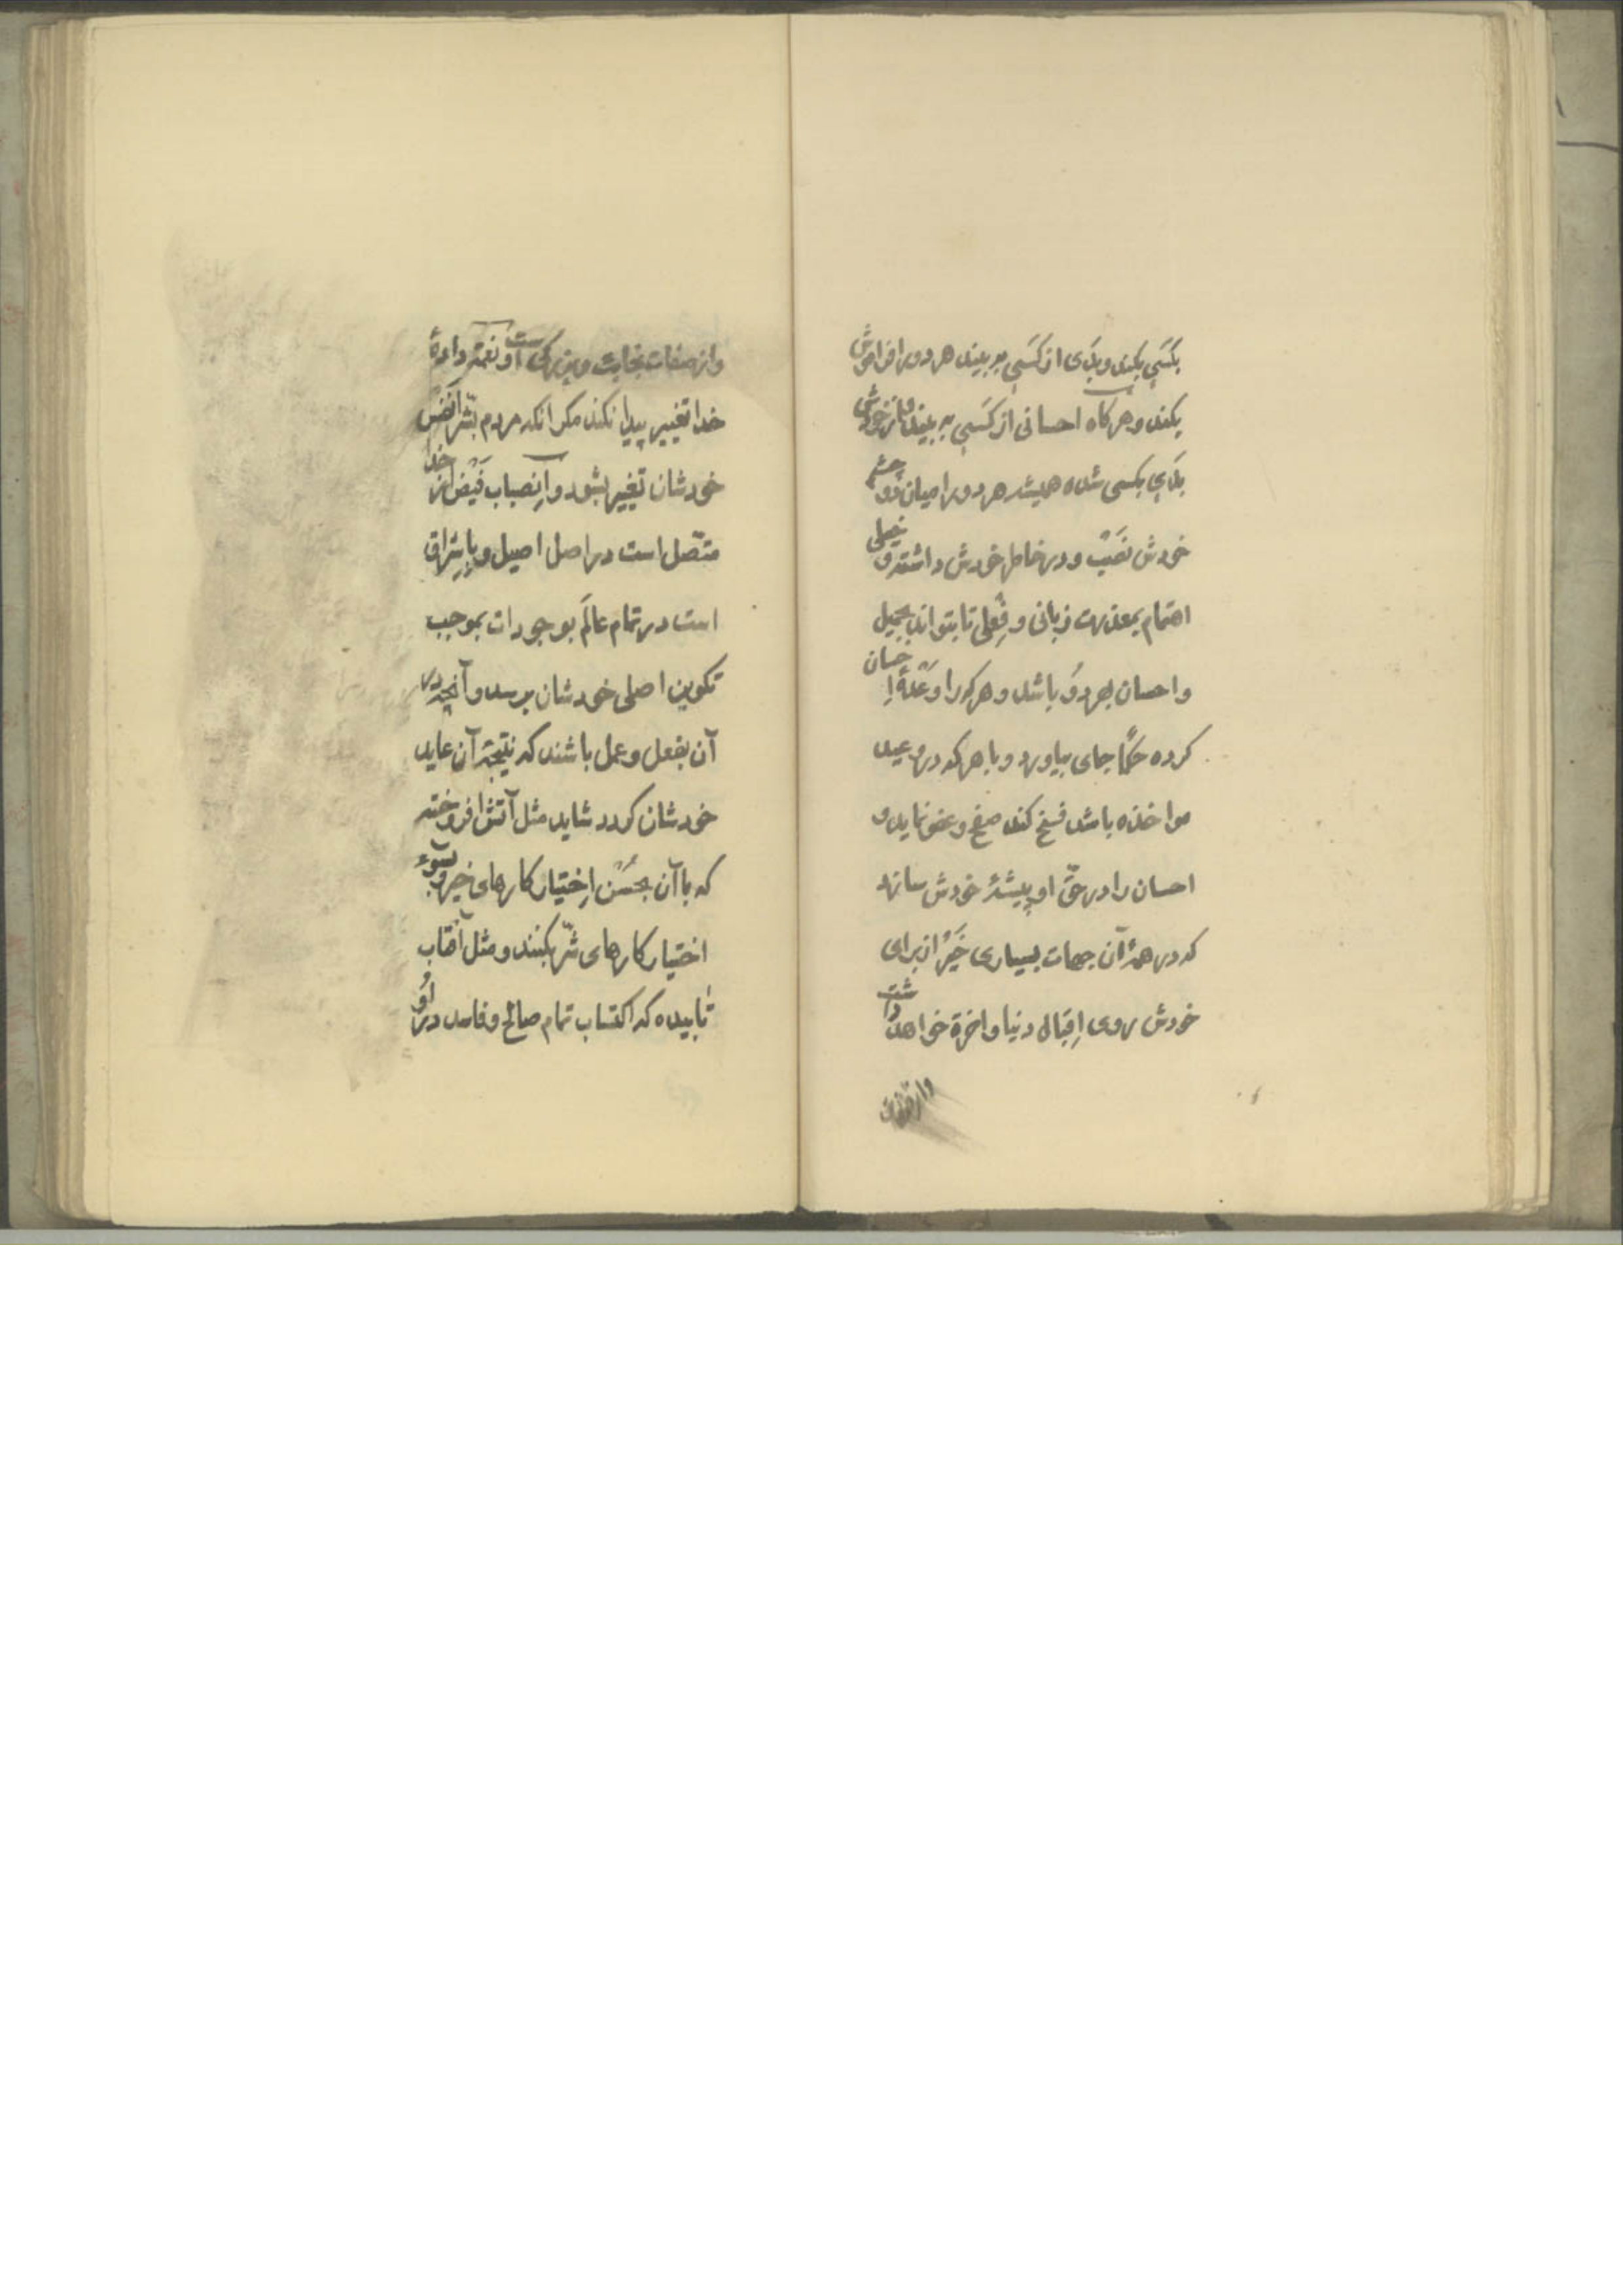 بکسَی بکند و بدَی از کسَی به بیند هر دو را فراموش
بکند و هر کاه احسانی از کسَی به بیند و از خودش
بدَی بکسی شده همیشه هر دو را میان دو چشم
خودش نَصَبْ و در خاطر خودش داشته و خیلی
اهتمام بمعذرت زبانی و فِعْلی تا بتواند بجمیل
و احسان بهر دوُ باشد و هر کرا وَعْدۀ اِحسان
کرده حکمًا جای بیاورد و با هر که در وعید
مواخذه باشد فسخ کند صفح و عفو نماید و
احسان را در حقّ او پیشۀ خودش سازد
که در همۀ آن جهات بسیاری خَیْر از برای
خودش روی اِقبال دنیا و اخرة خواهد داشت
و از صفات
و از صفات نجابت و بزرکی اوست نعمتِ دادۀ
خدا تغییر پیدا نکند مکر انکه مردم بشَرِّ انفُسِ
خودشان تغییر بشود و اِنصباب فَیْض از خدا
متّصل است در اصل اصیل و باِشراق
است در تمام عالَم بوجودات بموجب
تکوین اصلی خودشان برسد و آنچه در
آن بفعل و عمل باشند که نتیجۀ آن عاید
خودشان کردد شاید مثل آتش افروخته
که با آن بحُسْن اِختیار کارهای خیر و بسَوء
اختیار کارهای شرّ بکنند و مثل آفتاب
تابیده که اکتساب تمام صالح و فاسد در اوُ